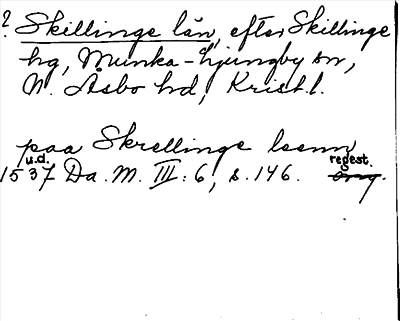 ? Skillinge län, efter Skillinge
hg, Munka-Ljungby sn,
N. Åsbo hd, Krist.l.
paa Skrellinge leenn
u.d. regest.
1537 Da. M. III: 6, s. 146. orig.